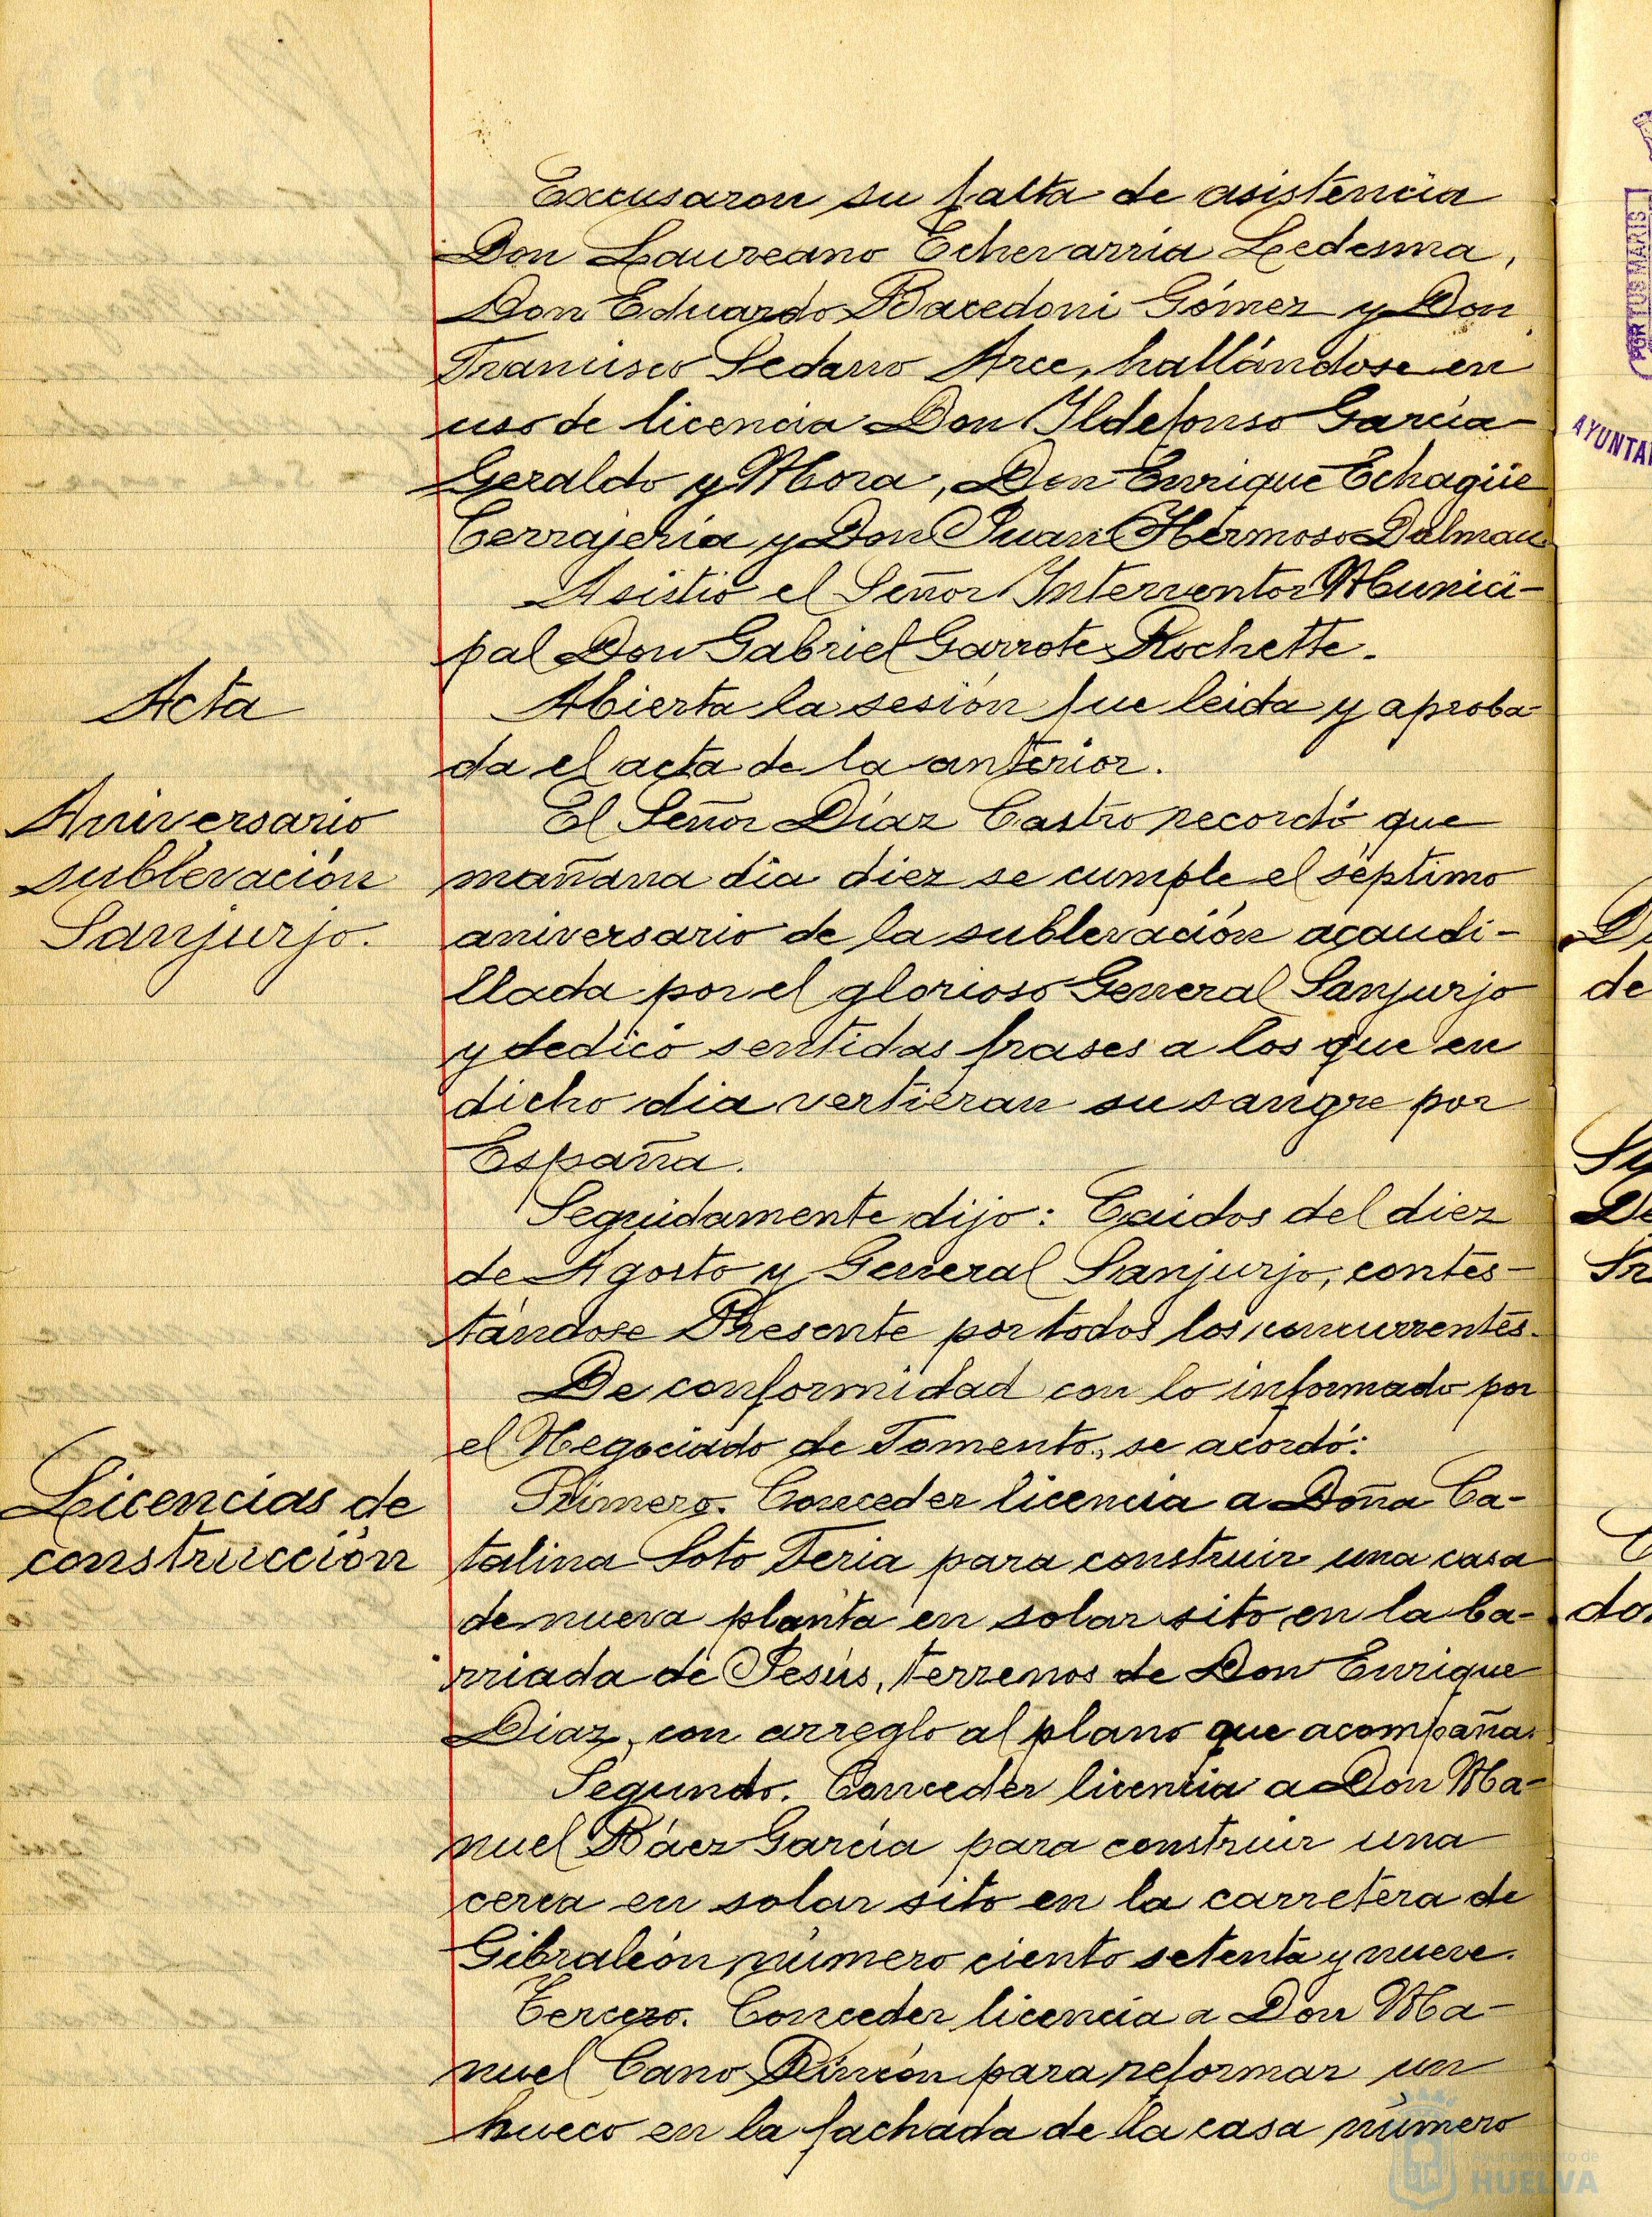 Excusaron su falta de asistencia
Don Laureano Echevarria Ledesma,
Don Eduardo Bacedoni Gómez y Don
Francisco Sedano Arce, hallándose en
uso de licencia Don Ildefonso García
Geraldo y Mora, Don Enrique Echagüe
Cerrajería y Don Juan Hermoso Dalmau
Asistió el Señor Interventor Munici-
pal Don Gabriel Garrote Rochette.
Acta
Abierta la sesión fue leida y aproba-
da el acta de la anterior.
Aniversario
sublevación
Sanjurjo.
El Señor Díaz Castro recordó que
mañana día diez se cumple el séptimo
aniversario de la sublevación acaudi-
llada por el glorioso General Sanjurjo
y dedicó sentidas frases a los que en
dicho día vertieran su sangre por
España.
Seguidamente dijo: Caidos del diez
de Agosto y General Sanjurjo, contes-
tándose Presente por todos los concurrentes.
De conformidad con lo informado por
el Negociado de Fomento, se acordó:
Licencias de
construcción
Primero. Conceder licencia a Doña Ca-
talina Soto Feria para construir una casa
de nueva planta en solar sito en la ba-
rriada de Jesús, terrenos de Don Enrique
Díaz, con arreglo al plano que acompaña.
Segundo. Conceder licencia a Don Ma-
nuel Báez García para construir una
cerca en solar sito en la carretera de
Gibraleón número ciento setenta y nueve.
Tercero. Conceder licencia a Don Ma-
nuel Cano Rincón para reformar un
hueco en la fachada de la casa número
PORTUS MARIS
AYUNTA
de
De
do
Ayuntamiento de
HUELVA